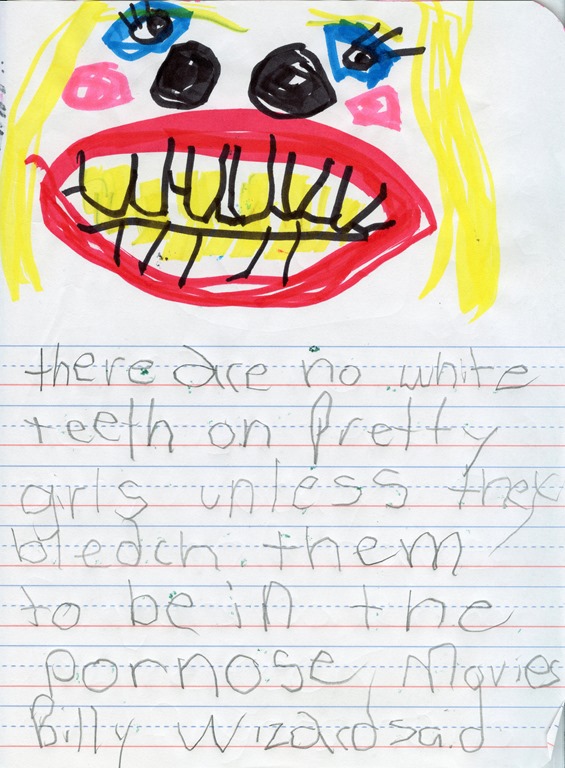 there are no white
teeth on pretty
girls unless they
bleach them
to be in the
pornose Movies
Billy Wizard said